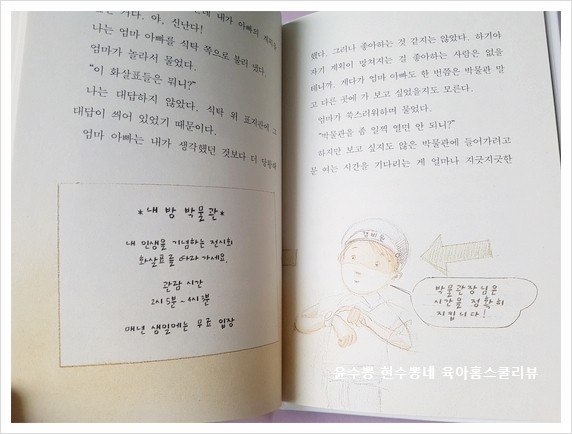 내가 아빠의 계획을
신난다!
나는 엄마 아빠를 식탁 쪽으로 불러 냈다.
엄마가 놀라서 물었다.
"이 화살표들은 뭐니?"
나는 대답하지 않았다. 식탁 위 표지판에 그
대답이 씌어 있었기 때문이다.
엄마 아빠는 내가 생각했던 것보다 더 당황해
*내 방 박물관*
내 인생을 기념하는 전시회
화살표를 따라 가세요.
관람 시간
2시 5분~4시 3분
매년 생일에는 무료 입장
했다. 그러나 좋아하는 것 같지는 않았다. 하기야
자기 계획이 망쳐지는 걸 좋아하는 사람은 없을
테니까. 게다가 엄마 아빠도 한 번쯤은 박물관 말
고 다른 곳에 가 보고 싶었을지도 모른다.
엄마가 쑥스러워하며 물었다.
"박물관을 좀 일찍 열면 안 되니?"
하지만 보고 싶지도 않은 박물관에 들어가려고
문 여는 시간을 기다리는 게 얼마나 지긋지긋한
경비원
박물관장님은
시간을 정확히
지킵니다!
윤수뽕 현수뽕네 육아홈스쿨리뷰